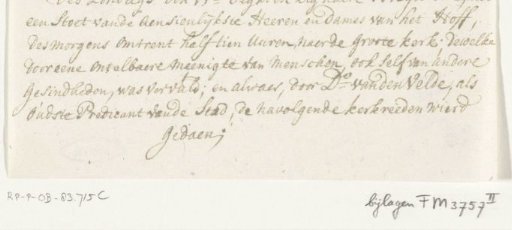 een Stoet vande aensienlykste Heeren en dames van het Hoff,
des morgens omtrent half tien Uuren, naerde groote kerk; dewelke
door eene ontelbaere meenigte van menschen, ook self van andere
gesindheden, was vervuld; en alwaer, door Do. vanden Velde, als
Oudste Predicant vande Stad, de navolgende kerkreeden wierd
gedaen;
RP-P-OB-83.715C
bijlagen FM 3757 II